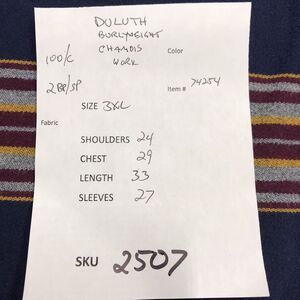 DULUTH
BURLYWEIGHT
100/C CHAMOIS Color
WORK
2BP/SP Item # 74254
SIZE 3XL
Fabric
SHOULDERS 24
CHEST 29
LENGTH 33
SLEEVES 27
SKU 2507